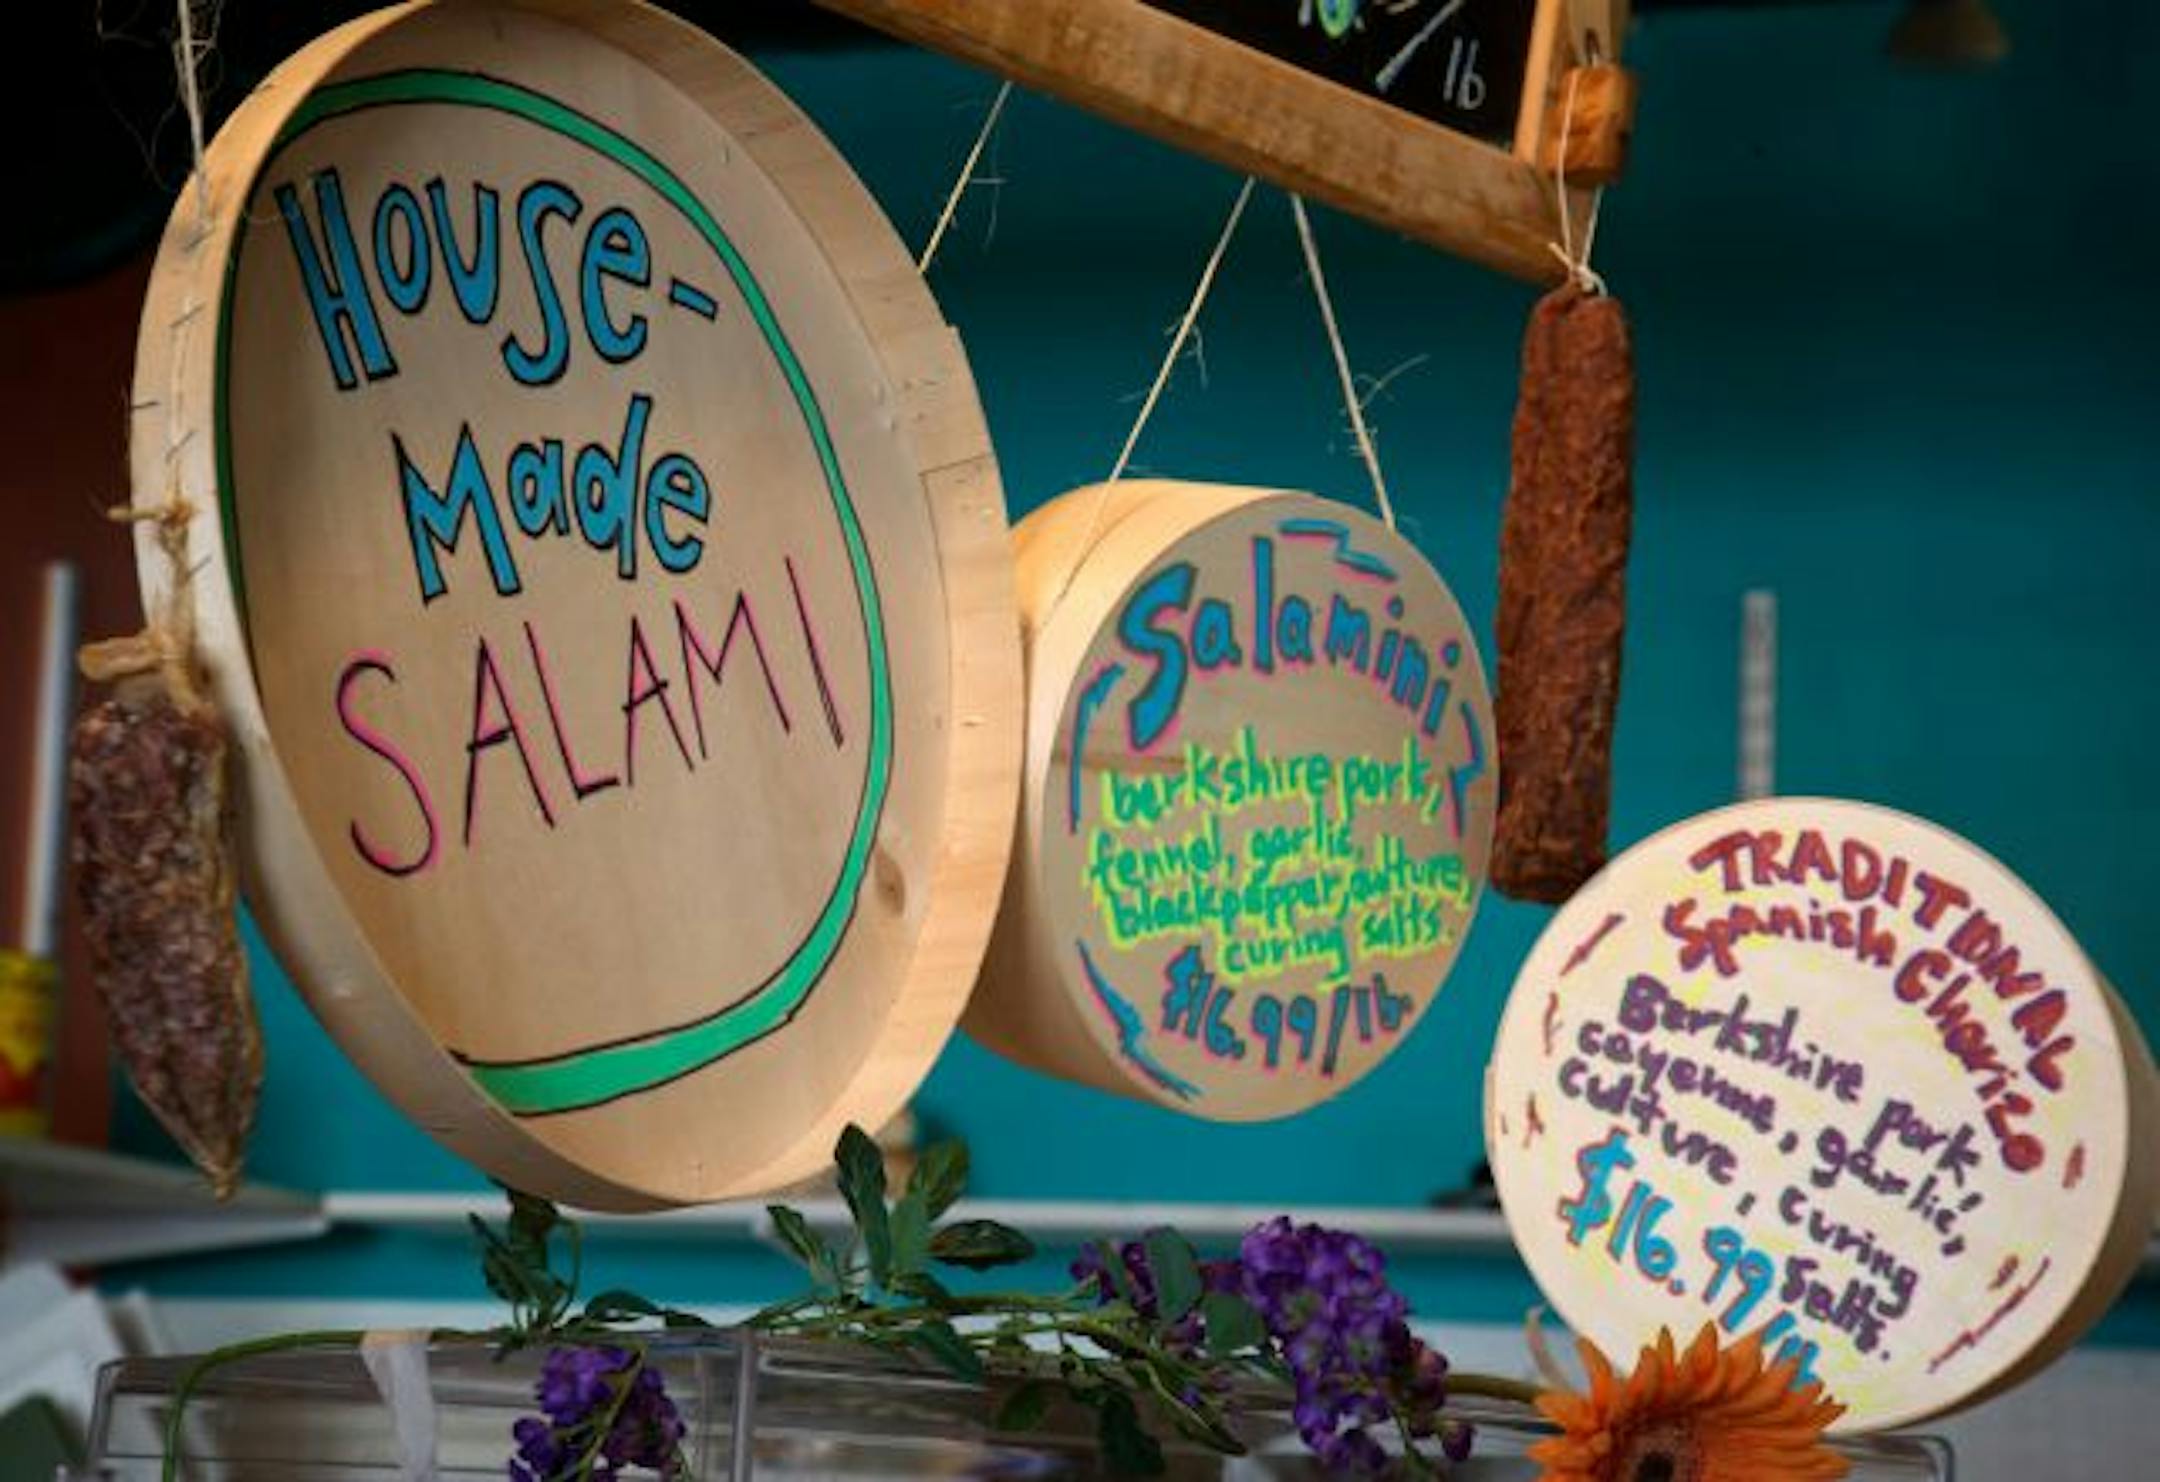 lb
House-
Made
SALAMI
Salamini
berkshire pork,
fennel, garlic,
black pepper, culture,
curing salts.
$16.99/lb.
TRADITIONAL
Spanish Chorizo
Berkshire pork,
cayenne, garlic,
culture, curing
salts.
$16.99/lb